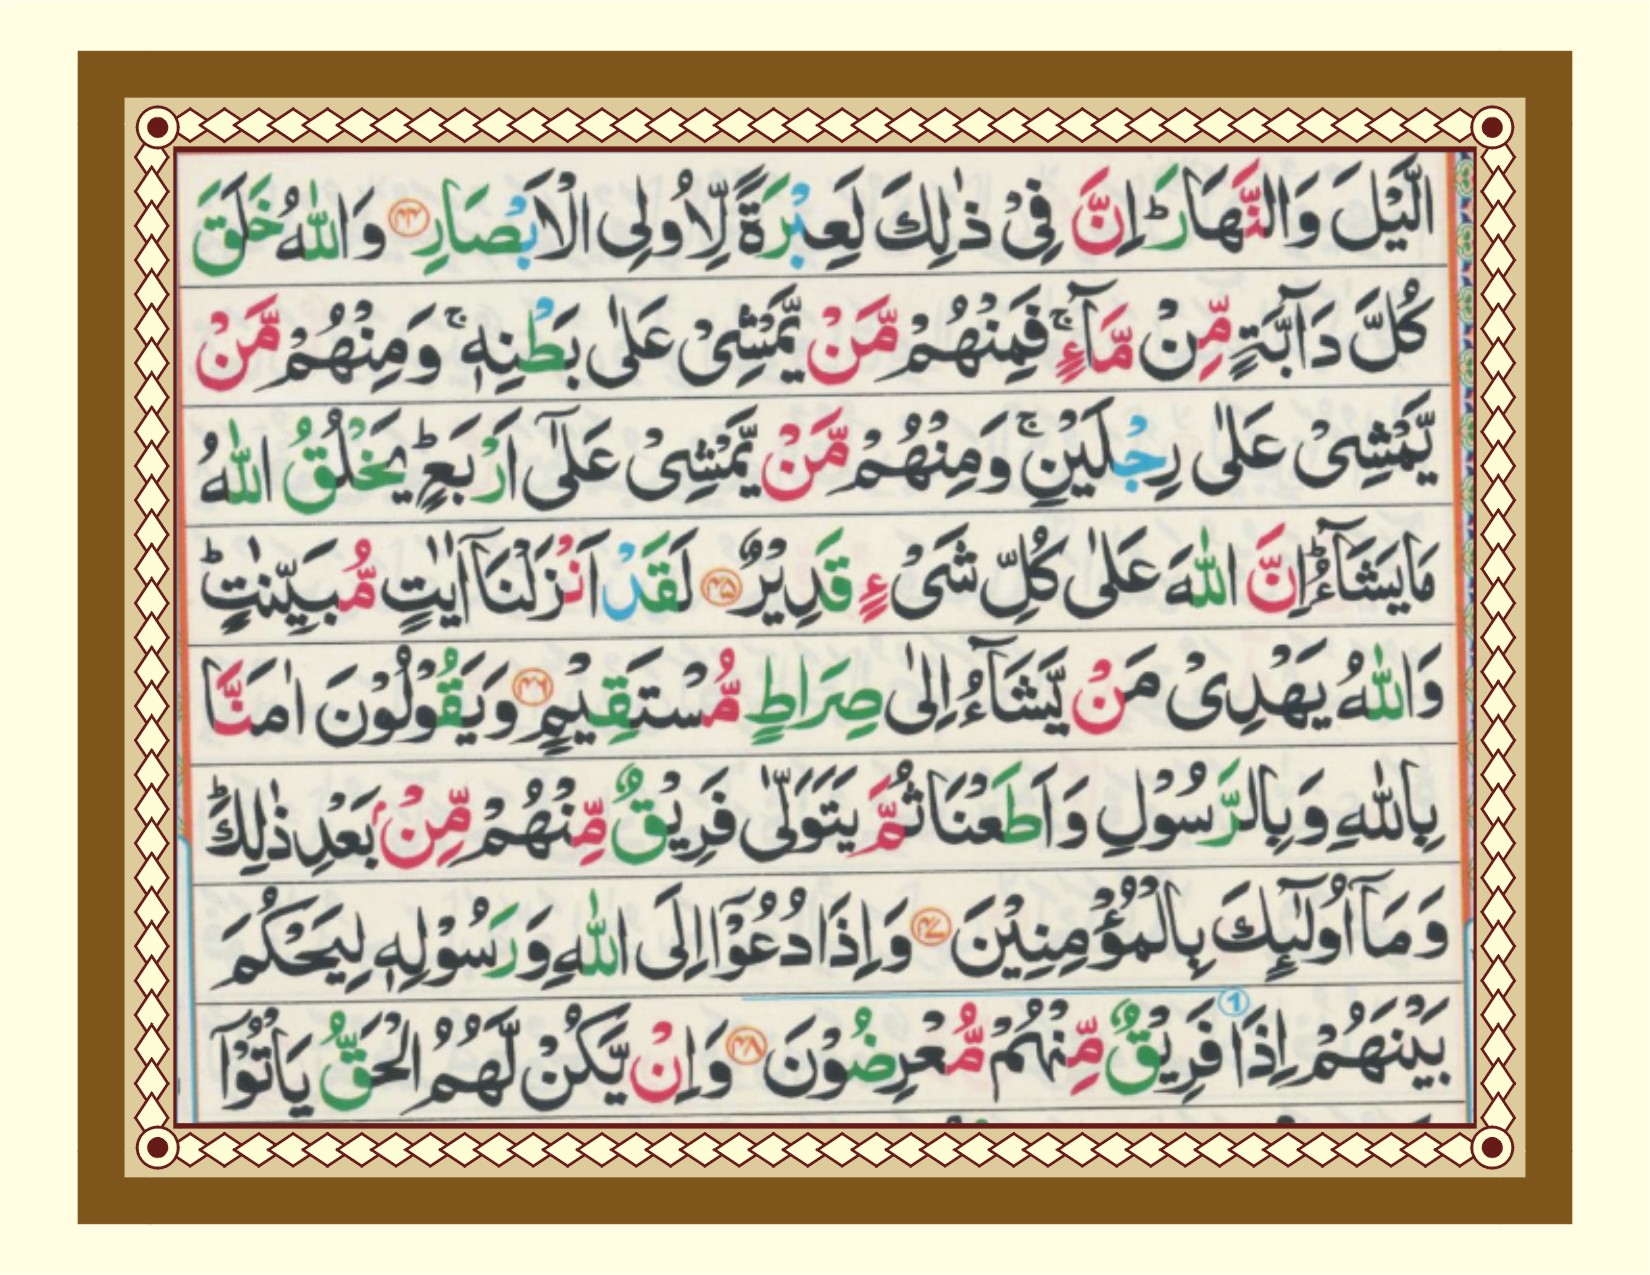 الَّيْلَ وَالنَّهَارَ ؕ اِنَّ فِىْ ذٰلِكَ لَعِبْرَةً لِّاُولِى الْاَبْصَارِ ۴۴ وَاللّٰهُ خَلَقَ
كُلَّ دَآبَّةٍ مِّنْ مَّآءٍ ۚ فَمِنْهُمْ مَّنْ يَّمْشِىْ عَلٰى بَطْنِهٖ ۚ وَمِنْهُمْ مَّنْ
يَّمْشِىْ عَلٰى رِجْلَيْنِ ۚ وَمِنْهُمْ مَّنْ يَّمْشِىْ عَلٰٓى اَرْبَعٍ ؕ يَخْلُقُ اللّٰهُ
مَا يَشَآءُ ؕ اِنَّ اللّٰهَ عَلٰى كُلِّ شَىْءٍ قَدِيْرٌ ۴۵ لَقَدْ اَنْزَلْنَاۤ اٰيٰتٍ مُّبَيِّنٰتٍ ؕ
وَاللّٰهُ يَهْدِىْ مَنْ يَّشَآءُ اِلٰى صِرَاطٍ مُّسْتَقِيْمٍ ۴۶ وَيَقُوْلُوْنَ اٰمَنَّا
بِاللّٰهِ وَبِالرَّسُوْلِ وَاَطَعْنَا ثُمَّ يَتَوَلّٰى فَرِيْقٌ مِّنْهُمْ مِّنْۢ بَعْدِ ذٰلِكَ ؕ
وَمَاۤ اُولٰٓئِكَ بِالْمُؤْمِنِيْنَ ۴۷ وَاِذَا دُعُوْۤا اِلَى اللّٰهِ وَرَسُوْلِهٖ لِيَحْكُمَ
بَيْنَهُمْ اِذَا فَرِيْقٌ مِّنْهُمْ مُّعْرِضُوْنَ ۴۸ وَاِنْ يَّكُنْ لَّهُمُ الْحَقُّ يَاْتُوْۤا